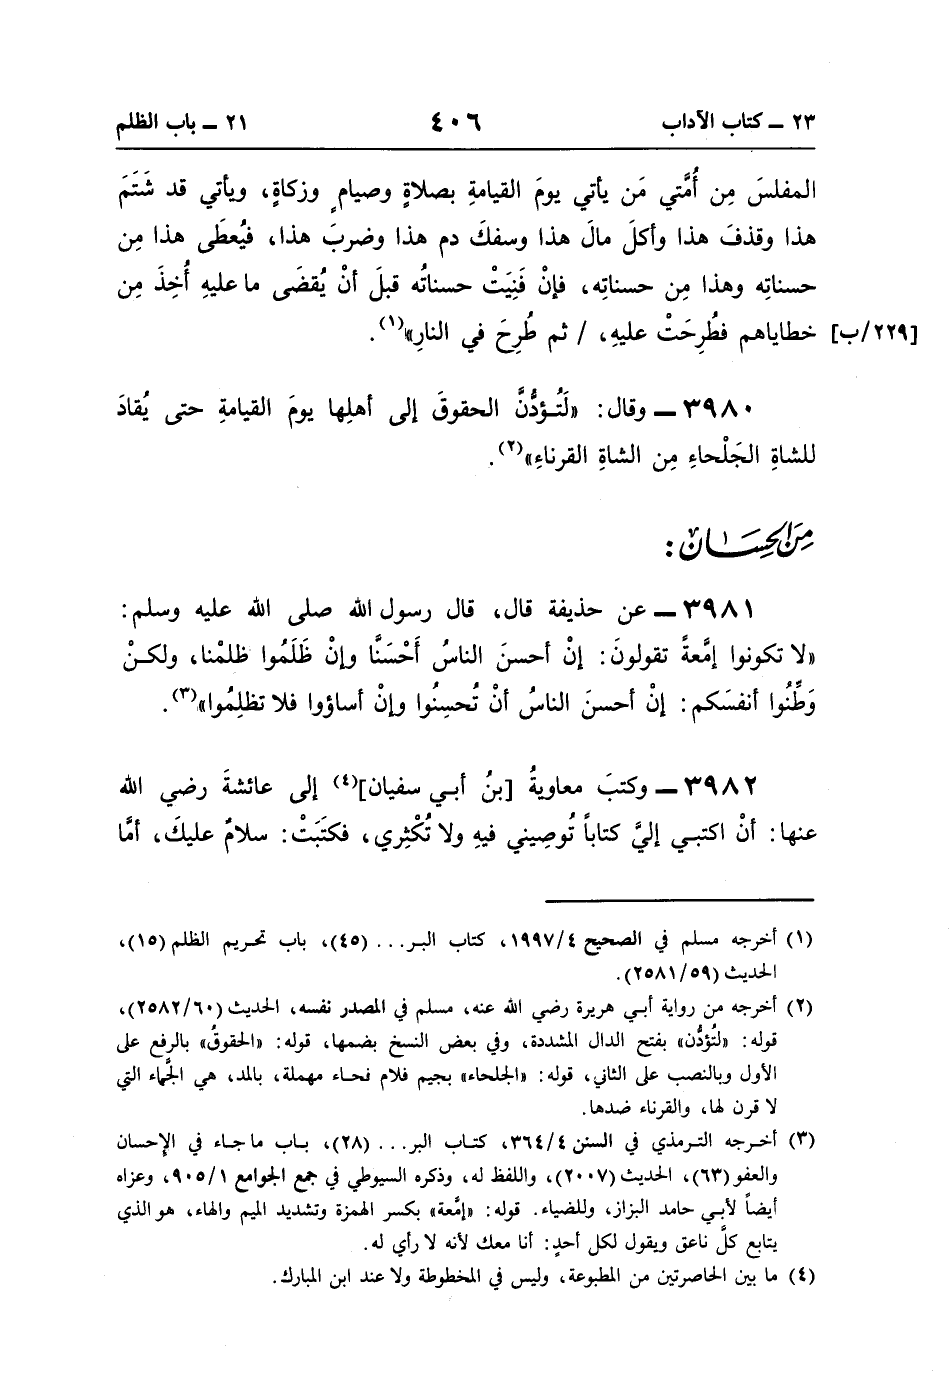 ٢٣ ــ كتاب الآداب ٤٠٦ ٢١ ــ باب الظلم
المفلسَ مِن أُمَّتي مَن يأتي يومَ القيامةِ بصلاةٍ وصيامٍ وزكاةٍ، ويأتي قد شَتَمَ
هذا وقذفَ هذا وأكلَ مالَ هذا وسفكَ دم هذا وضربَ هذا، فيُعطَى هذا مِن
حسناتِه وهذا مِن حسناتِه، فإنْ فَنِيَتْ حسناتُه قبلَ أنْ يُقضَى ما عليهِ أُخِذَ مِن
[٢٢٩/ب] خطاياهم فطُرِحَتْ عليهِ، / ثم طُرِحَ في النارِ»(١).
٣٩٨٠ ــ وقال: «لَتُـؤدُّنَّ الحقوقَ إلى أهلِها يومَ القيامةِ حتى يُقادَ
للشاةِ الجَلْحاءِ مِن الشاةِ القرناءِ»(٢).
مِنَ الحِسَان :
٣٩٨١ ــ عن حذيفة قال، قال رسول الله صلى الله عليه وسلم:
«لا تكونوا إمَّعةً تقولونَ: إنْ أحسنَ الناسُ أَحْسَنَّا وإنْ ظَلَمُوا ظلمْنا، ولكنْ
وَطِّنُوا أنفسَكم: إنْ أحسنَ الناسُ أنْ تُحسِنُوا وإنْ أساؤوا فلا تظلِمُوا»(٣).
٣٩٨٢ ــ وكتبَ معاويةُ [بنُ أبـي سفيان](٤) إلى عائشةَ رضي الله
عنها: أنْ اكتبـي إليَّ كتاباً تُوصِيني فيهِ ولا تُكْثِري، فكتَبَتْ: سلامٌ عليكَ، أمَّا
(١) أخرجه مسلم في الصحيح ١٩٩٧/٤، كتاب البر... (٤٥)، باب تحريم الظلم (١٥)،
الحديث (٢٥٨١/٥٩).
(٢) أخرجه من رواية أبـي هريرة رضي الله عنه، مسلم في المصدر نفسه، الحديث (٢٥٨٢/٦٠)،
قوله: «لتُؤدُّن» بفتح الدال المشددة، وفي بعض النسخ بضمها، قوله: «الحقوقُ» بالرفع على
الأول وبالنصب على الثاني، قوله: «الجلحاء» بجيم فلام فحاء مهملة، بالمد، هي الجَّماء التي
لا قرن لها، والقرناء ضدها.
(٣) أخرجه الترمذي في السنن ٣٦٤/٤، كتاب البر... (٢٨)، باب ما جاء في الإحسان
والعفو (٦٣)، الحديث (٢٠٠٧)، واللفظ له، وذكره السيوطي في جمع الجوامع ٩٠٥/١، وعزاه
أيضاً لأبـي حامد البزاز، وللضياء. قوله: «إمَّعة» بكسر الهمزة وتشديد الميم والهاء، هو الذي
يتابع كلَّ ناعق ويقول لكل أحدٍ: أنا معك لأنه لا رأي له.
(٤) ما بين الحاصرتين من المطبوعة، وليس في المخطوطة ولا عند ابن المبارك.